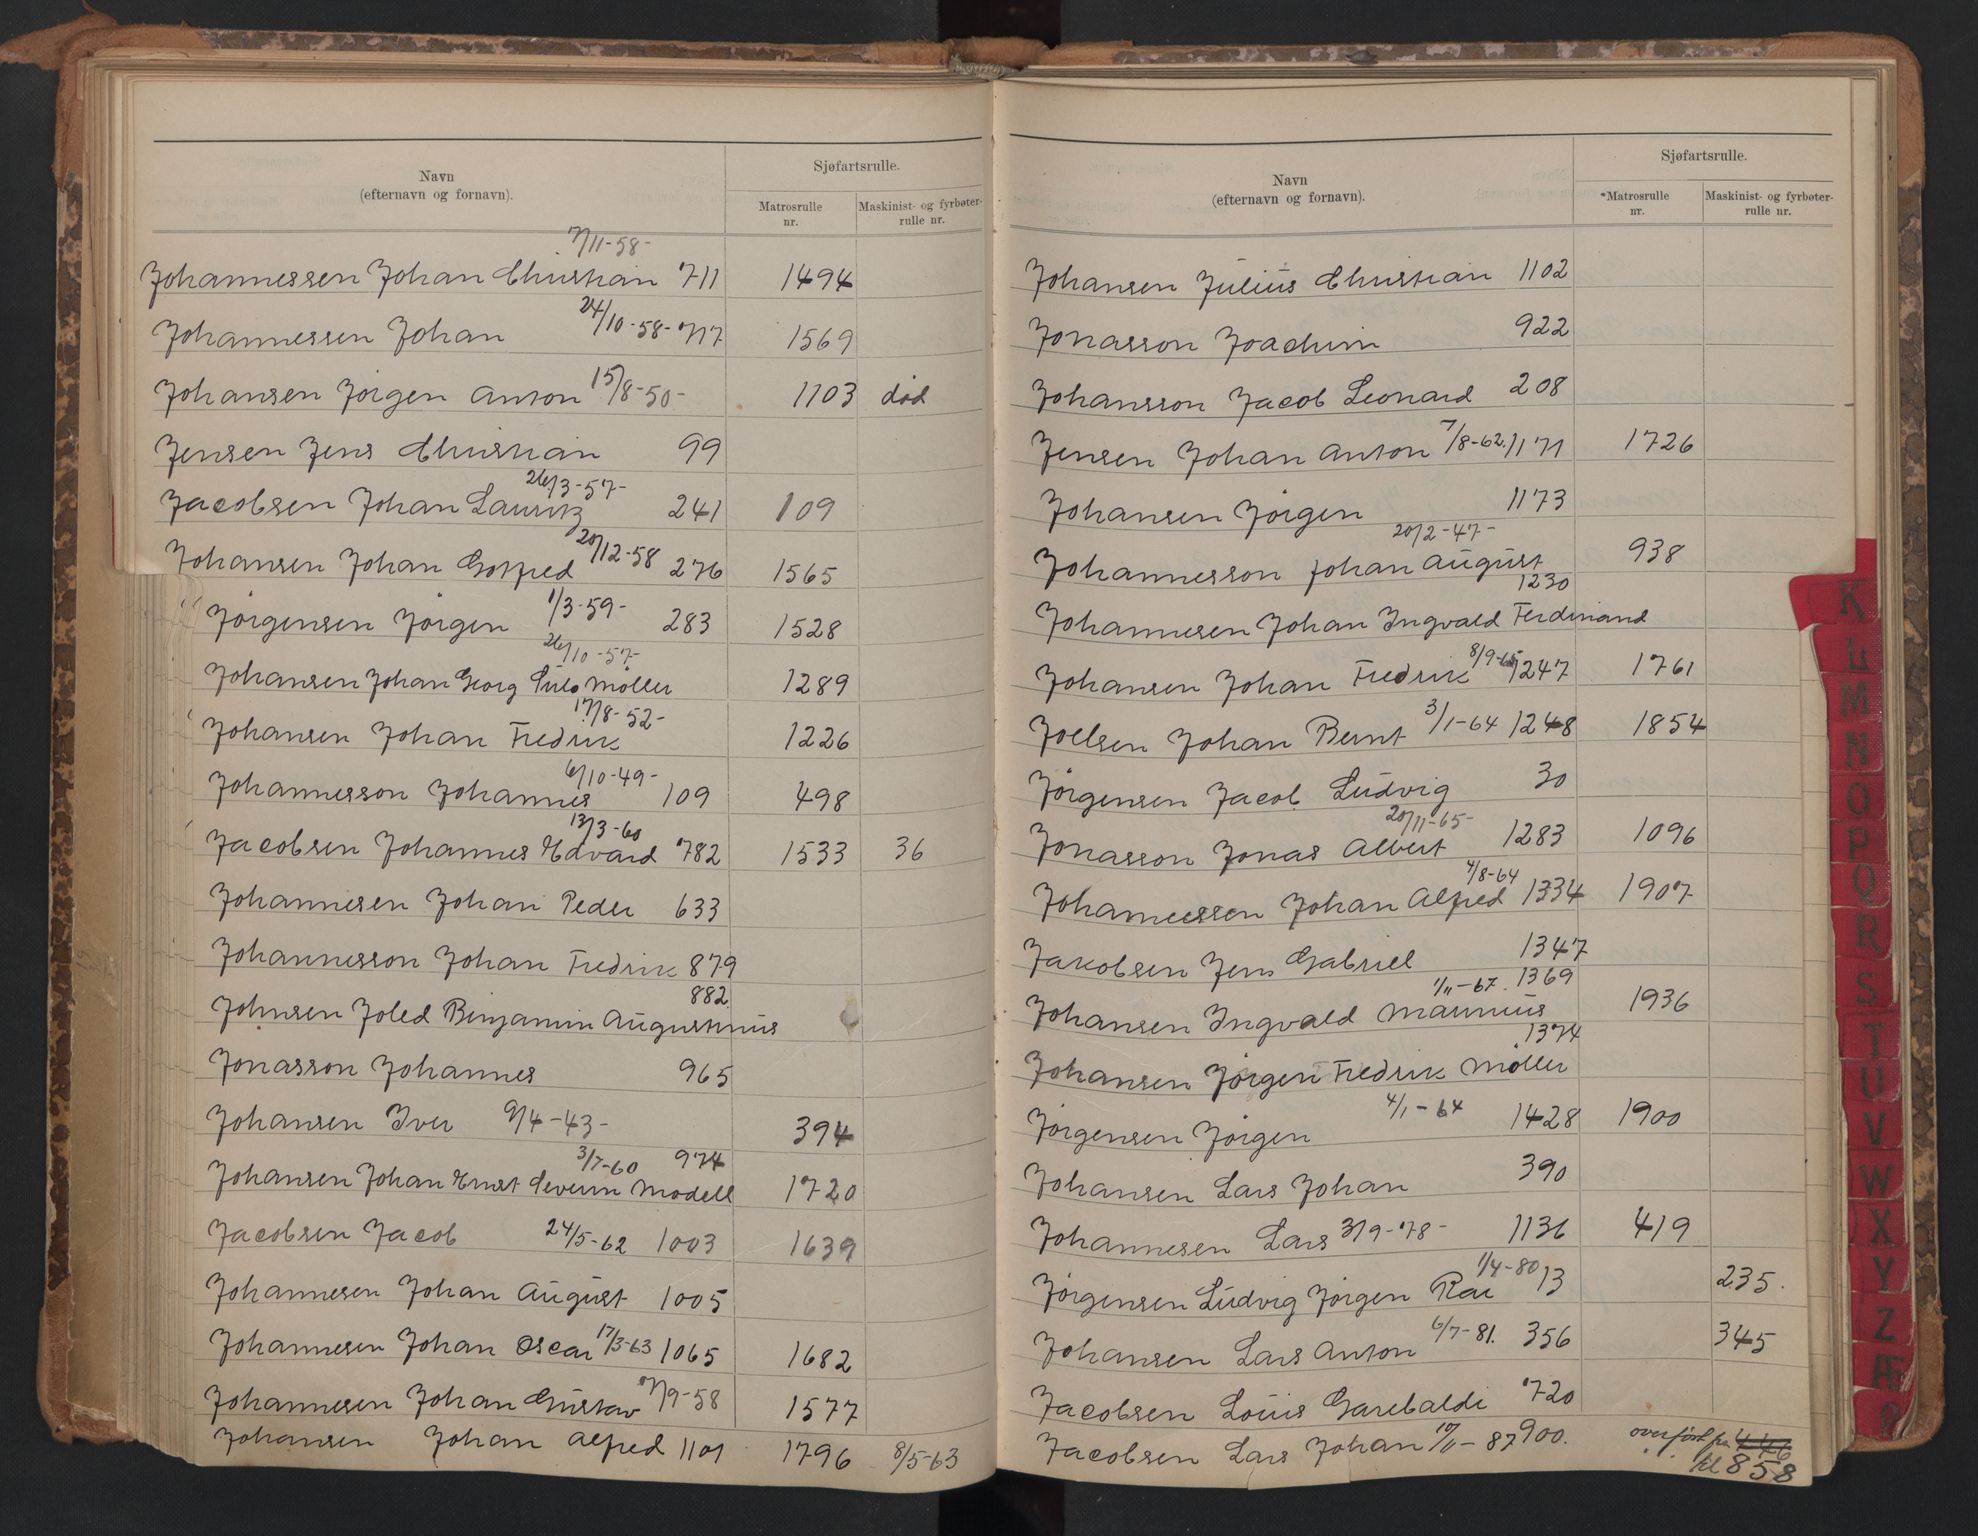 Navn
(efternavn og fornavn).
Sjøfartsrulle.
Matrosrulle nr.
Maskinist- og fyrbøter-rulle nr.
7/11-58-
Johannessen Johan Christian 711 1494
Johannessen Johan 24/10-58- 717 1569
Johansen Jörgen Anton 15/8-50- 1103 död
Jensen Jens Christian 99
26/3-57-
Jacobsen Johan Lauritz 241 109
Johansen Johan Gotfred 20/12-58 276 1565
Jörgensen Jörgen 1/3-59- 283 1528
26/10-57-
Johansen Johan Georg Möller 1289
17/8-52-
Johansen Johan Fredrik 1226
6/10-49-
Johannesson Johannes 109 498
13/3-60
Jacobsen Johannes Edvard 782 1533 36
Johannesen Johan Peder 633
Johannesson Johan Fredrik 879
882
Johnsen Joled Binjamin Augustinus
Jonasson Johannes 965
Johansen Iver 9/4-43- 394
3/7-60 974
Johansen Johan Ernst Severin Modell 1720
Jacobsen Jacob 24/5-62 1003 1639
Johannesen Johan August 1005
Johannesen Johan Oscar 17/3-63 1065 1682
Johannesen Johan Gustav 7/9-58 1577
Johansen Johan Alfred 1101 1796 8/5-63
Navn
(efternavn og fornavn).
Sjøfartsrulle.
Matrosrulle nr.
Maskinist- og fyrbøter-rulle nr.
Johansen Julius Christian 1102
Jonasson Joachim 922
Johansson Jacob Leonard 208
Jensen Johan Anton 7/8-62. 1171 1726
Johansen Jörgen 1173
20/2-47-
Johannesson Johan August 938
1230
Johannesen Johan Ingvald Ferdinand
Johansen Johan Fredrik 8/9-65 1247 1761
Joelsen Johan Bernt 3/1-64 1248 1854
Jörgensen Jacob Ludvig 30
20/11-65-
Jonasson Jonas Albert 1283 1096
4/8-64
Johannessen Johan Alfred 1334 1907
Jakobsen Jens Gabriel 1347
1/11-67. 1369
Johansen Ingvald Marinius 1936
1374
Johansen Jörgen Fredrik Möller
Jörgensen Jörgen 4/1-64 1428 1900
Johansen Lars Johan 390
Johannesen Lars 3/9-78- 1136 419
Jörgensen Ludvig Jörgen Rai 1/4-80 13 235.
Johansen Lars Anton 6/7-81. 356 345
Jacobsen Louis Garibaldi 720
Jacobsen Lars Johan 10/11-87 900. overfört fra 446
til 858
K
L
M
N
O
P
Q
R
S
T
U
V
W
X
Y
Z
Æ
Ø